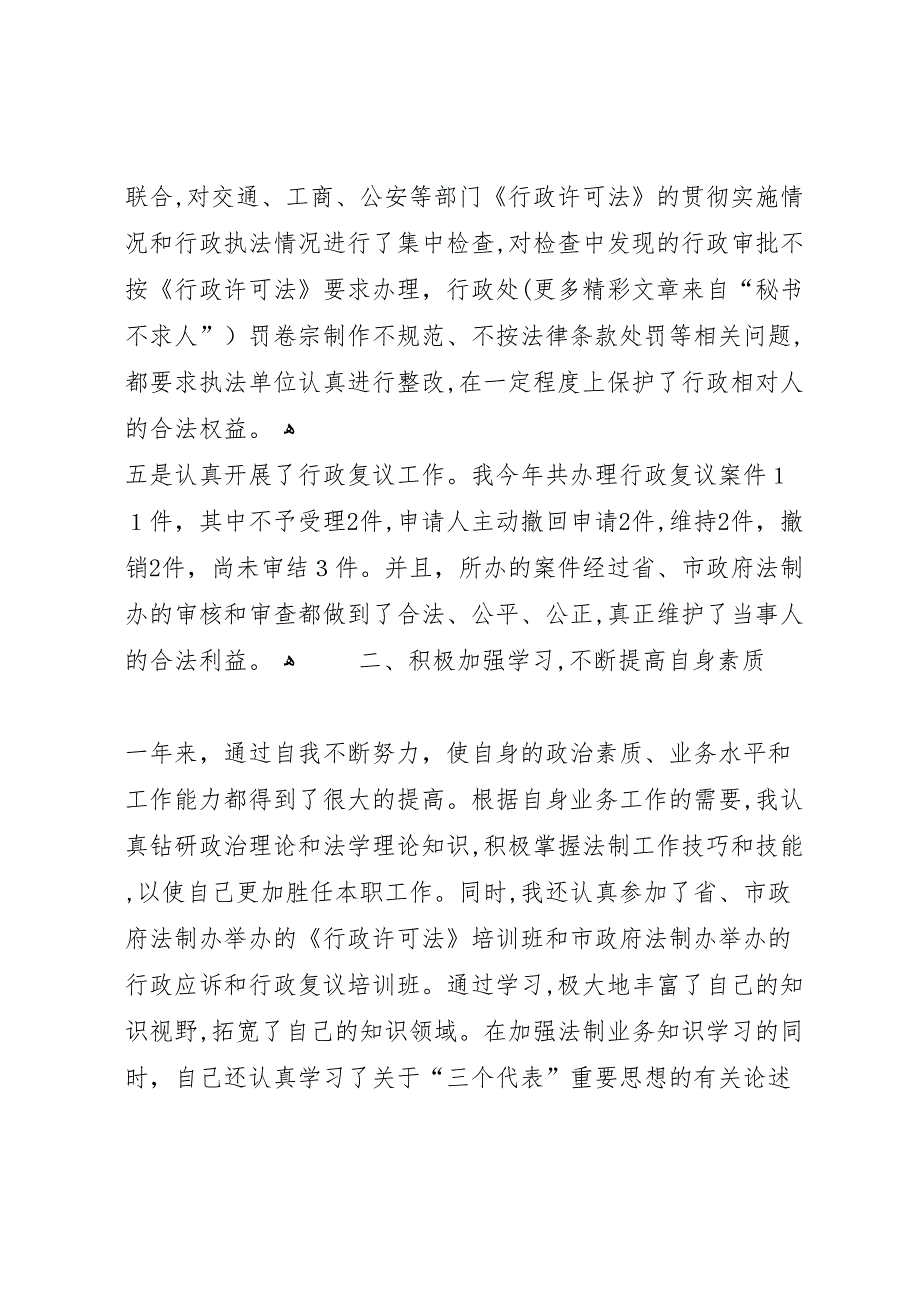 联合,对交通、工商、公安等部门《行政许可法》的贯彻实施情
况和行政执法情况进行了集中检查,对检查中发现的行政审批不
按《行政许可法》要求办理，行政处(更多精彩文章来自“秘书
不求人”）罚卷宗制作不规范、不按法律条款处罚等相关问题,
都要求执法单位认真进行整改,在一定程度上保护了行政相对人
的合法权益。 ﻫ
五是认真开展了行政复议工作。我今年共办理行政复议案件１
１件，其中不予受理2件,申请人主动撤回申请2件,维持2件，撤
销2件，尚未审结３件。并且，所办的案件经过省、市政府法制
办的审核和审查都做到了合法、公平、公正,真正维护了当事人
的合法利益。 ﻫ 二、积极加强学习,不断提高自身素质
一年来，通过自我不断努力，使自身的政治素质、业务水平和
工作能力都得到了很大的提高。根据自身业务工作的需要,我认
真钻研政治理论和法学理论知识,积极掌握法制工作技巧和技能
,以使自己更加胜任本职工作。同时,我还认真参加了省、市政
府法制办举办的《行政许可法》培训班和市政府法制办举办的
行政应诉和行政复议培训班。通过学习,极大地丰富了自己的知
识视野,拓宽了自己的知识领域。在加强法制业务知识学习的同
时，自己还认真学习了关于“三个代表”重要思想的有关论述